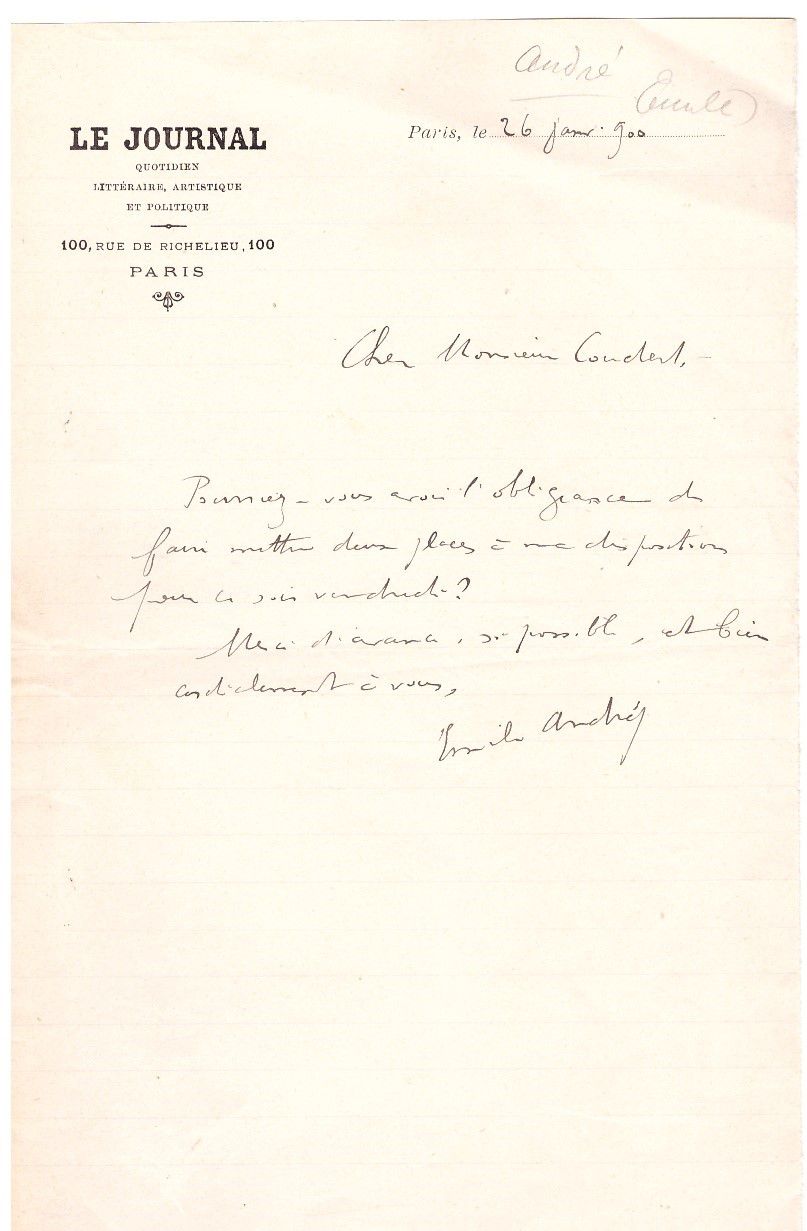 André
Emile
LE JOURNAL
QUOTIDIEN
LITTÉRAIRE, ARTISTIQUE
ET POLITIQUE
100, RUE DE RICHELIEU, 100
PARIS
Paris, le 26 janv. 900
Cher Monsieur Coudert, –
Pourriez-vous avoir l'obligeance de
faire mettre deux places à ma disposition
pour ce soir vendredi?
Merci d'avance, si possible, et bien
cordialement à vous,
Emile André